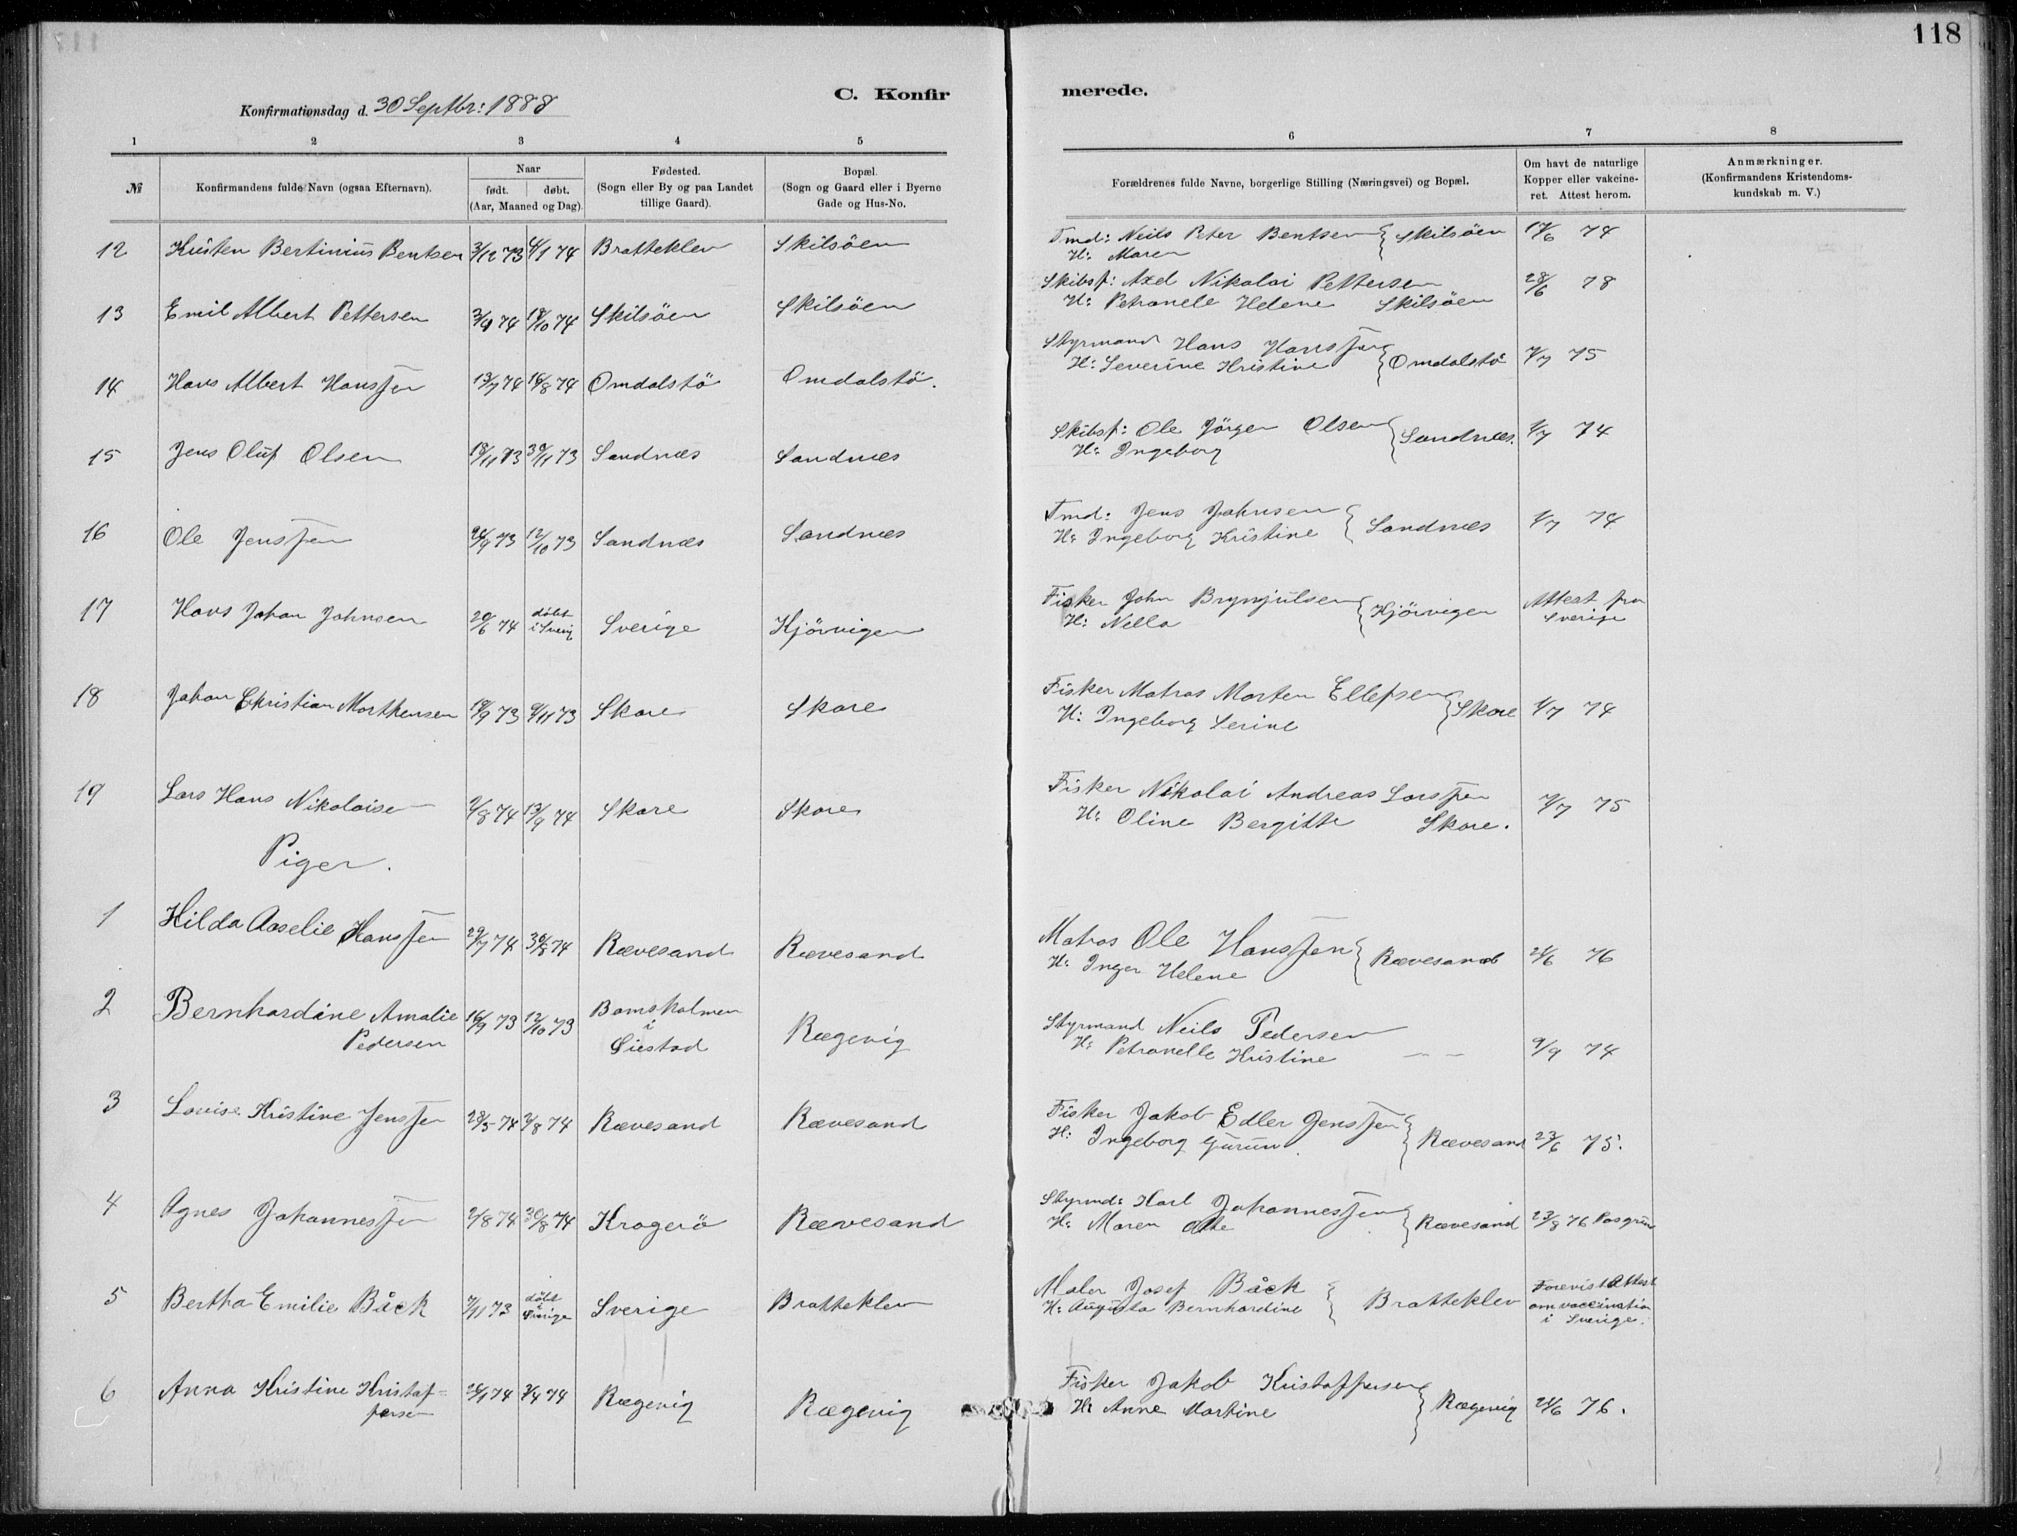 118
C. Konfir merede.
Konfirmationsdag d. 30 Septbr: 1888
1 2 3 4 5 6 7 8
№ Konfirmandens fulde Navn (ogsaa Efternavn). Naar født. døbt. (Aar, Maaned og Dag). Fødested. (Sogn eller By og paa Landet tillige Gaard). Bopæl. (Sogn og Gaard eller i Byerne Gade og Hus-No. Forældrenes fulde Navne, borgerlige Stilling (Næringsvei) og Bopæl. Om havt de naturlige Kopper eller vakcineret. Attest herom. Anmærkninger. (Konfirmandens Kristendomskundskab m. V.)
12 Kristen Bertinius Bentsen 3/12 73 4/1 74 Bratteklev Skilsöen Tmd: Neils Peter Bentsen Skilsöen 74
H: Maren
13 Emil Albert Pettersen 74 18/10 74 Skilsöen Skilsöen Skibsf: Axel Nikolai Pettersen 28/6 78
H: Petronele Helene Skilsöen
14 Hans Albert Hanssen 13/7 74 16/8 74 Omdalstö Omdalstö. Styrmand Hans Hanssen Omdalstö 75
H: Severine Kristine
15 Jens Oluf Olsen 73 30/11 73 Sandnæs Sandnæs Skibsf: Ole Jörgen Olsen Sandnæs. 1/7 74
H: Ingeborg
16 Ole Jenssen 73 12/10 73 Sandnæs Sandnæs Tmd: Jens Johnsen Sandnæs 1/7 74
H: Ingeborg Kristine
17 Hans Johan Johnsen 20/6 74 döbt i Sverig Sverige Kjörvigen Fisker John Brynjulsen Kjörvigen Attest fra Sverige
H: Nella
18 Johan Christian Morthensen 73 73 Skare Skare Fisker Matros Morten Ellefsen Skare 1/7 74
H: Ingeborg Serine
19 Lars Hans Nikolaise 74 13/9 74 Skare Skare Fisker Nikolai Andreas Larssen 75
H: Oline Bergitte Skare.
Piger.
1 Hilda Aaselie Hanssen 29/7 74 30/8 74 Rævesand Rævesand Matros Ole Hanssen Rævesand 24/6 76
H: Inger Helene
2 Bernhardine Amalie 73 12/10 73 Bomsholmen Rægevig Styrmand Neils Pedersen 9/9 74
Pedersen i Öiestad H: Petronelle Kristine — —
3 Lovise Kristine Jenssen 28/5 74 2/8 74 Rævesand Rævesand Fisker Jakob Edler Jenssen Rævesand 23/6 75.
H: Ingeborg Gurun
4 Agnes Johannessen 2/8 74 30/8 74 Kragerö Rævesand Styrmd: Karl Johannessen Rævesand 23/8 76 Posgrun
H: Maren
5 Bertha Emilie Båck 73 döbt i Sverige Sverige Bratteklev Maler Josef Båck Bratteklev Forevist Attest
H: Augusta Bernhardine om vaccination
i Sverige.
6 Anna Kristine Kristof= 74 74 Rægevig Rægevig Fisker Jakob Kristoffersen Rægevig 24/6 76.
fersen H: Anne Martine